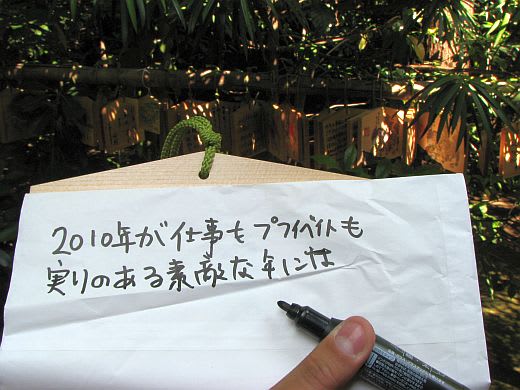 2010年が仕事もプライベイトも
実りのある素敵な年には